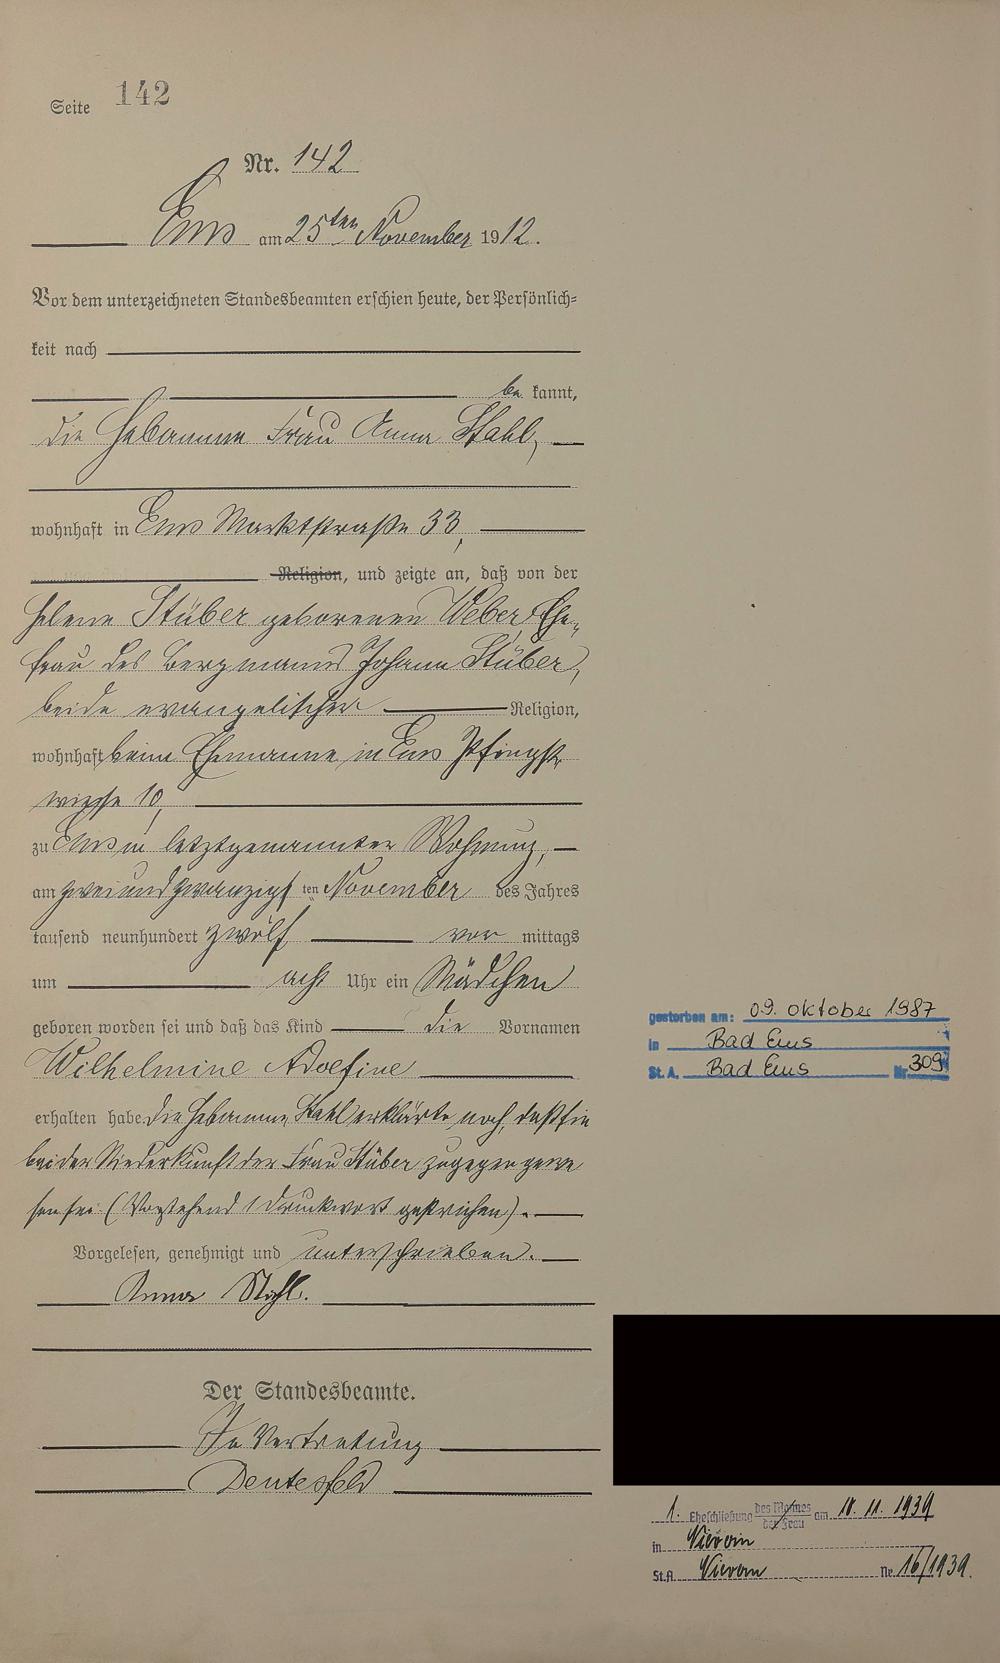 Seite 142
Nr. 142
Ems am 25ten November 1912.
Vor dem unterzeichneten Standesbeamten erschien heute, der Persönlich-
keit nach
be kannt,
die Hebamme Frau Anna Stahl,
wohnhaft in Ems Marktstraße 33,
Religion, und zeigte an, daß von der
Helene Stüber geborenen Weber, Ehe-
frau des Bergmanns Johann Stüber,
beide evangelischer Religion,
wohnhaft beim Ehemanne in Ems Pfingst-
wiese 10,
zu Ems in letztgenannter Wohnung,
am zweiundzwanzigsten November des Jahres
tausend neunhundert zwölf vor mittags
um acht Uhr ein Mädchen
geboren worden sei und daß das Kind die Vornamen
Wilhelmine Adolfine
erhalten habe. Die Hebamme Stahl erklärte noch, daß sie
bei der Niederkunft der Frau Stüber zugegen gewe
sen sei. (Vorstehend 1 Druckwort gestrichen).
Vorgelesen, genehmigt und unterschrieben.
Anna Stahl.
Der Standesbeamte.
In Vertretung
gestorben am: 09. Oktober 1987
in Bad Ems
St. A. Bad Ems Nr. 309
1. Eheschließung des Mannes der Frau am 10. 11. 1939
in Nievern
St.A. Nievern Nr. 16/1939.